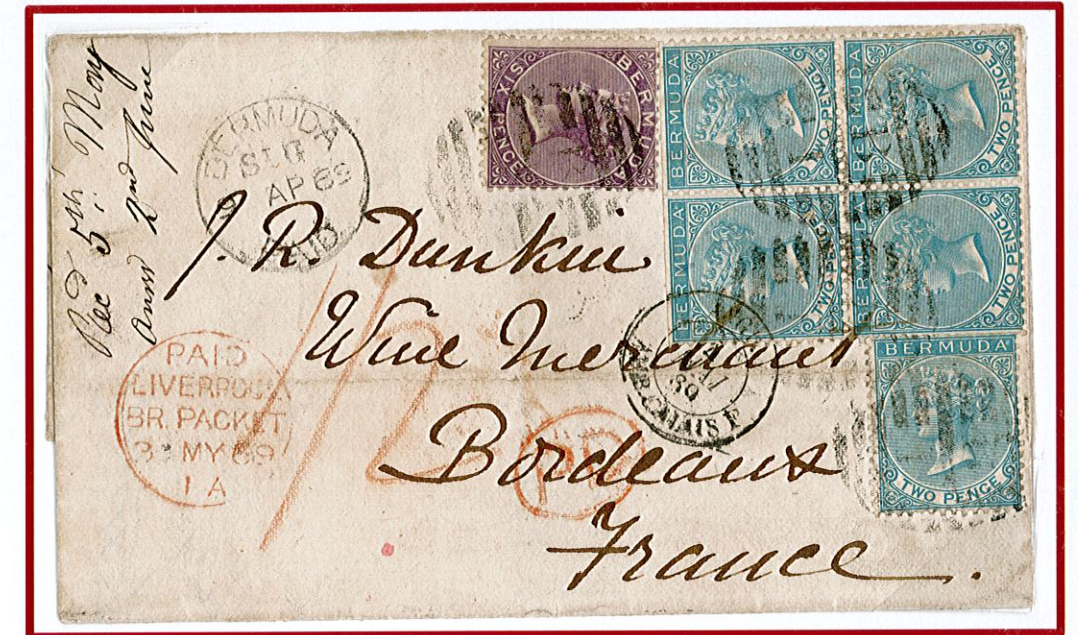 Rec'd 5th May
Answd 2nd June
BERMUDA
AP 69
PAID
SIX PENCE
BERMUDA
BERMUDA
TWO PENCE
BERMUDA
TWO PENCE
BERMUDA
TWO PENCE
BERMUDA
TWO PENCE
BERMUDA
TWO PENCE
J. R. Dunkin
Wine Merchant
Bordeaux
France.
1/2
CALAIS
PAID
LIVERPOOL
BR. PACKET
3 MY 69
1 A
PD